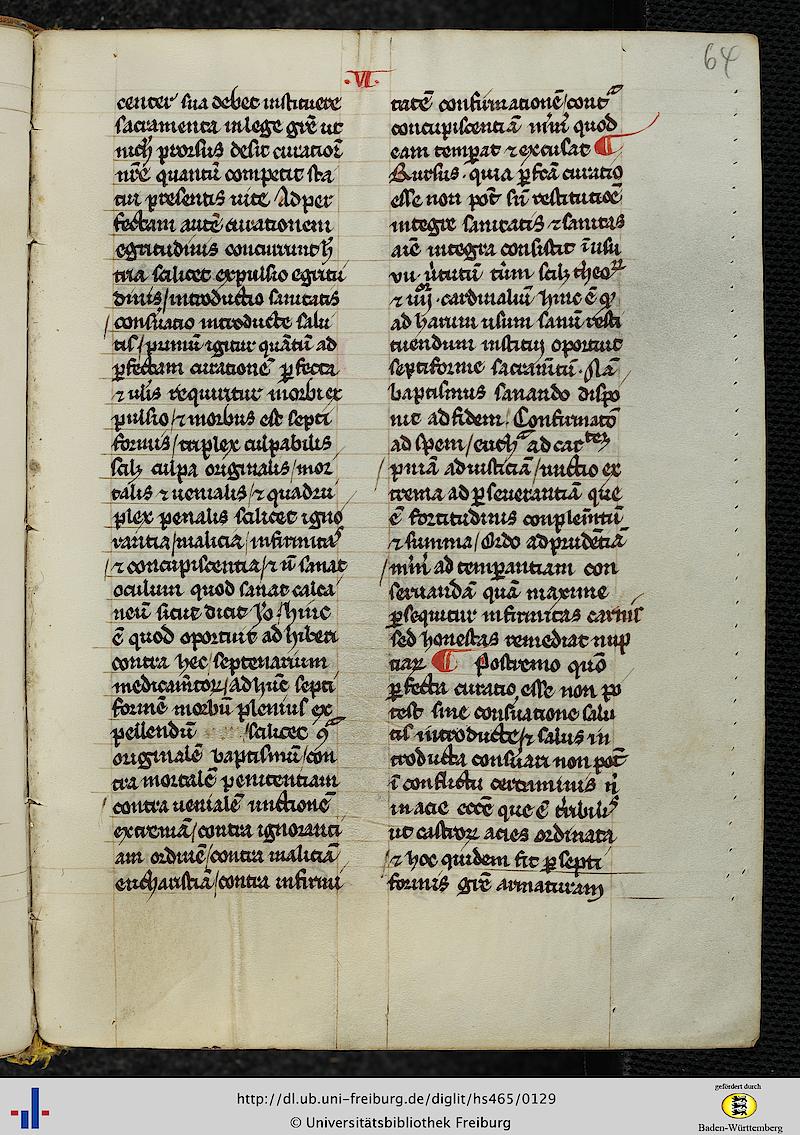 64
.VI.
center sua debet instituere
sacramenta in lege grē ut
nich̄ prorsus desit curatiōi
nrē quantū competit sta
tui presentis vite Ad per
fectam autē curationem
egritudinis concurrunt h̄
tria scilicet expulsio egritu
dinis/introductio sanitatis
/conẜuatio introducte salu
tis/primū igitur quātū ad
ꝑfectam curationē ꝑfecta
⁊ ulīs requiritur morbi ex
pulsio/⁊ morbus est septi
formis/triplex culpabilis
scilꝫ culpa originalis/mor
talis ⁊ uenialis/⁊ quadru
plex penalis scilicet igno
rantia/malicia/infirmitas
/⁊ concupiscentia/⁊ ū sanat
oculum quod sanat calca
neū sicut dicit Io. hinc
ē quod oportuit adhiberi
contra hec/septenarium
medicam̄toꝝ/ad hūc septi
formē morbū plenius ex
pellendū /scilicet 9ᵃ
originalē baptismū/con
tra mortalē penitentiam
/contra uenialē unctionē
extremā/contra ignoranti
am ordinē/contra maliciā
eucharistiā/contra infirmi
tatē confirmationē/contᵃ
concupiscentiā mr̄m quod
eam temperat ⁊ excusat ¶
Rursus. quia ꝑfc̄a curatio
esse non pōt sn̄ restitutiōe
integre sanitatis ⁊ sanitas
aīe integra consistit ī usu
vii u̇tutū triū scilꝫ theoꝝ
⁊ iiijor. cardinaliū hinc ē qͥ
ad harum usum sanū resti
tuendum institui oportuit
septiforme sacram̄tū. Nā
baptismus sanando dispo
nit ad fidem. Confirmatō
ad spem/euchᵃ ad caritatem
/pnīa ad iusticiā/unctio ex
trema ad ꝑseuerantiā que
ē fortitudinis conplem̄tū
⁊ summa/Ordo ad prudētiā
/mr̄m ad temperantiam con
seruandā quā maxime
ꝑsequitur infirmitas carnis
sed honestas remediat nup
tiaꝝ ¶ Postremo quō
ꝑfecta curatio esse non po
test sine conẜuatione salu
tis introducte/⁊ salus in
troducta conẜuari non pōt
ī conflictu certaminis n̄
in acie ecc̄e que ē tr̄ibilis
ut castroꝝ acies ordinata
/⁊ hoc quidem fit ꝑ septi
formis grē armaturam
http://dl.ub.uni-freiburg.de/diglit/hs465/0129
© Universitätsbibliothek Freiburg
gefördert durch
Baden-Württemberg